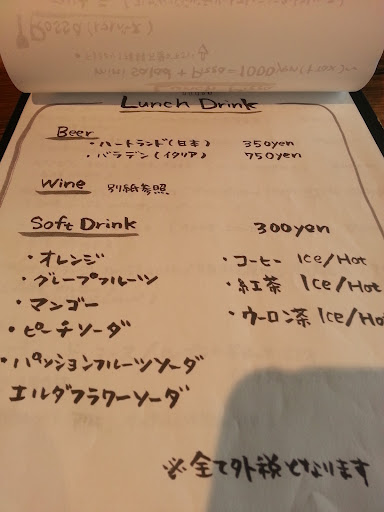 Rossa
mini salad + Pizza = 1000yen (+tax)~
Lunch Drink
Beer
・ハートランド(日本) 350yen
・バラデン(イタリア) 750yen
Wine 別紙参照
Soft Drink 300yen
・オレンジ ・コーヒー Ice/Hot
・グレープフルーツ ・紅茶 Ice/Hot
・マンゴー ・ウーロン茶 Ice/Hot
・ピーチソーダ
・パッションフルーツソーダ
エルダフラワーソーダ
※全て外税となります